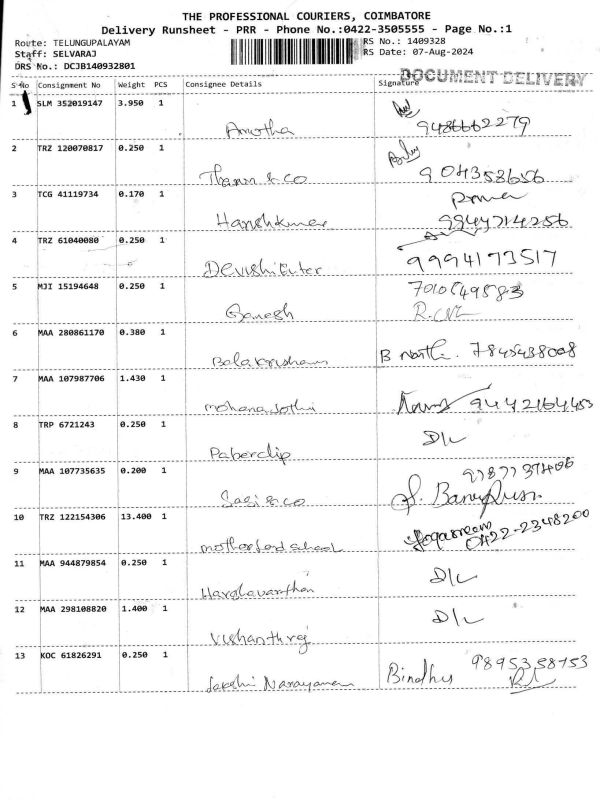 THE PROFESSIONAL COURIERS, COIMBATORE
Delivery Runsheet - PRR - Phone No.:0422-3505555 - Page No.:1
Route: TELUNGUPALAYAM
Staff: SELVARAJ
DRS No.: DCJB140932801
RS No.: 1409328
RS Date: 07-Aug-2024
DOCUMENT DELIVERY
S No Consignment No Weight PCS Consignee Details Signature
1 SLM 352019147 3.950 1
Amutha 9486662279
2 TRZ 120070817 0.250 1
& Co 904358656
3 TCG 41119734 0.170 1
Harishkumar 9944714256
4 TRZ 61040080 0.250 1
9994173517
5 MJI 15194648 0.250 1
Ganesh
6 MAA 280861170 0.380 1
Balakrishnan 7845438008
7 MAA 107987706 1.430 1
mohana Jothi 9442164453
8 TRP 6721243 0.250 1
Paberclip D/L
9 MAA 107735635 0.200 1
& co
10 TRZ 122154306 13.400 1
school 0422-2348200
11 MAA 944879854 0.250 1
D/L
12 MAA 298108820 1.400 1
Vishanthraj D/L
13 KOC 61826291 0.250 1
Narayanan Bindhu